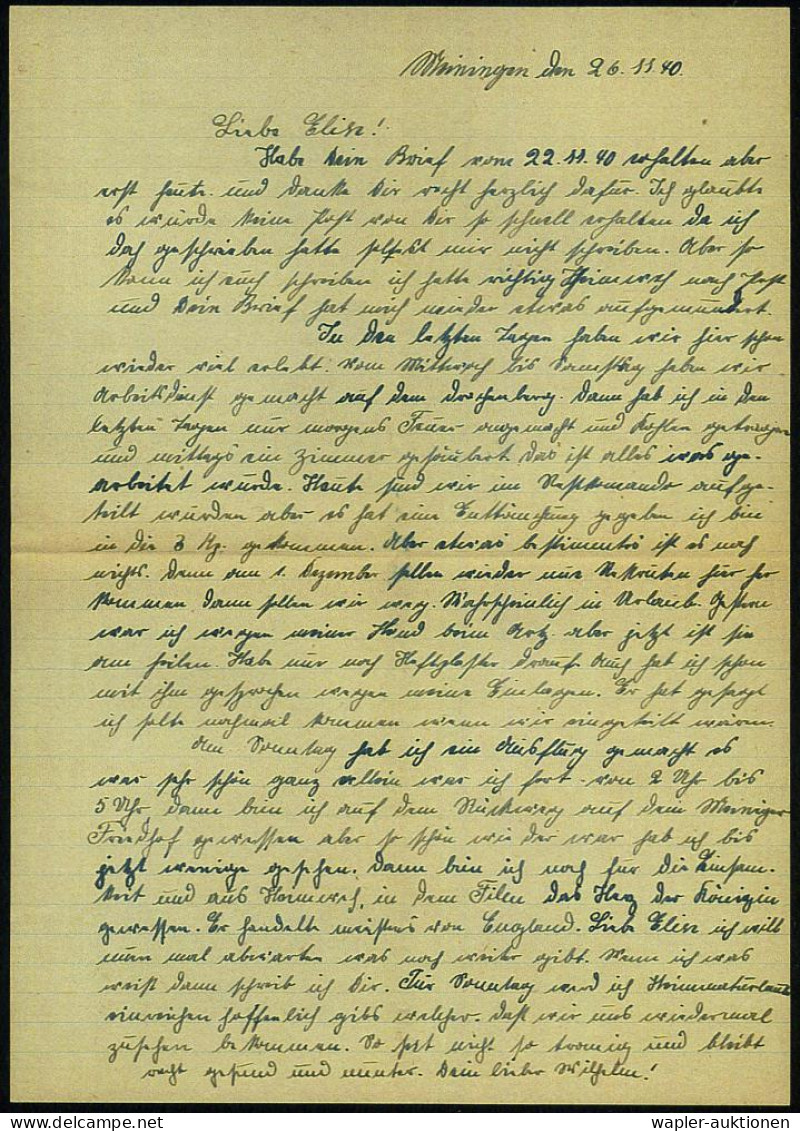 Meiningen den 26.11.40.
Liebe Elise!
Habe Dein Brief vom 22.11.40 erhalten aber
erst heute. und danke Dir recht herzlich dafür. Ich glaubte
es würde keine Post von Dir so schnell erhalten da ich
doch geschrieben hatte sollst mir nicht schreiben. Aber so
kann ich euch schreiben ich hatte richtig Heimweh nach Post
und Dein Brief hat mich wieder etwas aufgemundert.
In den letzten Tagen haben wir hier schon
wieder viel erlebt. vom Mittwoch bis Samstag haben wir
Arbeitsdienst gemacht auf dem Drachenberg. Dann hab ich in den
letzten Tagen nur morgens Feuer angemacht und Kohlen getragen
und mittags ein Zimmer gesäubert das ist alles was ge-
arbeitet wurde. Heute sind wir im Restkomando aufge-
teilt wurden aber es hat eine Enttäuschung gegeben ich bin
in die 3 Kp. gekommen. Aber etwas bestimmtes ist es noch
nichts. Denn am 1. Dezember sollen wieder neue Rekruten hier her
kommen, dann sollen wir weg. Wahrscheinlich in Urlaub. Gestern
war ich wegen meiner Hand beim Arzt. aber jetzt ist sie
am heilen. Habe nur noch Heftplaster drauf. Auch hat ich schon
mit ihm gesprochen wegen meine Einlagen. Er hat gesagt
ich solte nochmal kommen wenn wir eingeteilt wären.
Am Sonntag hab ich ein Ausflug gemacht es
war sehr schön ganz allein war ich fort. von 2 Uhr bis
5 Uhr, dann bin ich auf dem Rückweg auf dem Meininger
Friedhof gewessen aber so schön wie der war hab ich bis
jetzt wenige gesehen. Dann bin ich noch für die Einsam-
keit und aus Heimweh, in dem Film das Herz der Königin
gewessen. Er handelte meistens von England. Liebe Elise ich will
nun mal abwarten was noch weiter gibt. Wenn ich was
weiß dann schreib ich Dir. Für Sonntag werd ich Heimmaturlaub
einreichen hoffenlich gibs welcher. daß wir uns wiedermal
zusehen bekommen. So seit nicht so traurig und bleibt
recht gesund und munter. Dein lieber Wilhelm!
wapler-auktionen